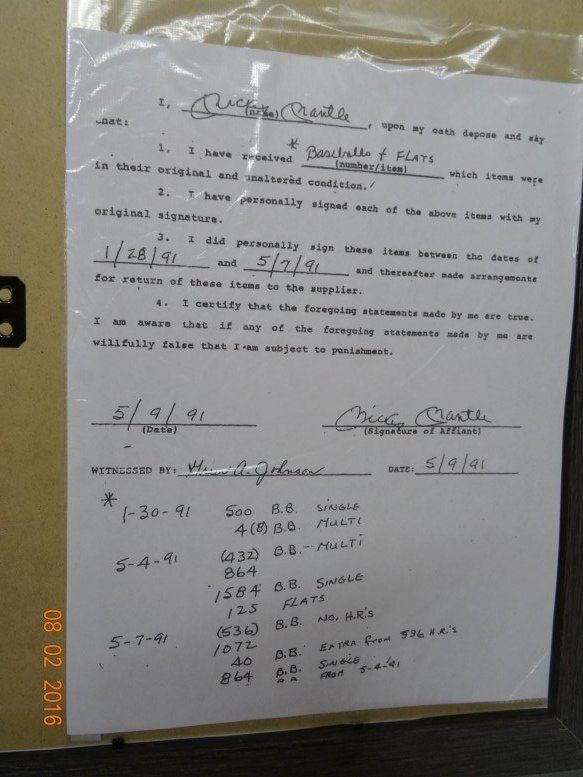 I, Mickey Mantle, upon my oath depose and say
(name)
that:
* Baseballs & FLATS
1. I have received which items were
(number/item)
in their original and unaltered condition.
2. I have personally signed each of the above items with my
original signature.
3. I did personally sign these items between the dates of
1/28/91 and 5/7/91 and thereafter made arrangements
for return of these items to the supplier.
4. I certify that the foregoing statements made by me are true.
I am aware that if any of the foregoing statements made by me are
willfully false that I am subject to punishment.
5/9/91 Mickey Mantle
(Date) (Signature of Affiant)
WITNESSED BY: A. Johnson DATE: 5/9/91
*
1-30-91 500 B.B. SINGLE
4(8) B.B. MULTI
5-4-91 (432) B.B. - MULTI
864
1584 B.B. SINGLE
125 FLATS
5-7-91 (536) B.B. NO. H.R's
1072
40 B.B. EXTRA from 536 H.R.'s
864 B.B. SINGLE
FROM 5-4-91
08 02 2016